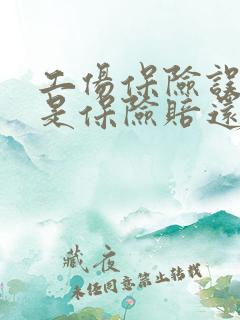 工傷保險誤
是保險賠還
藏夜
未经同意禁止转载